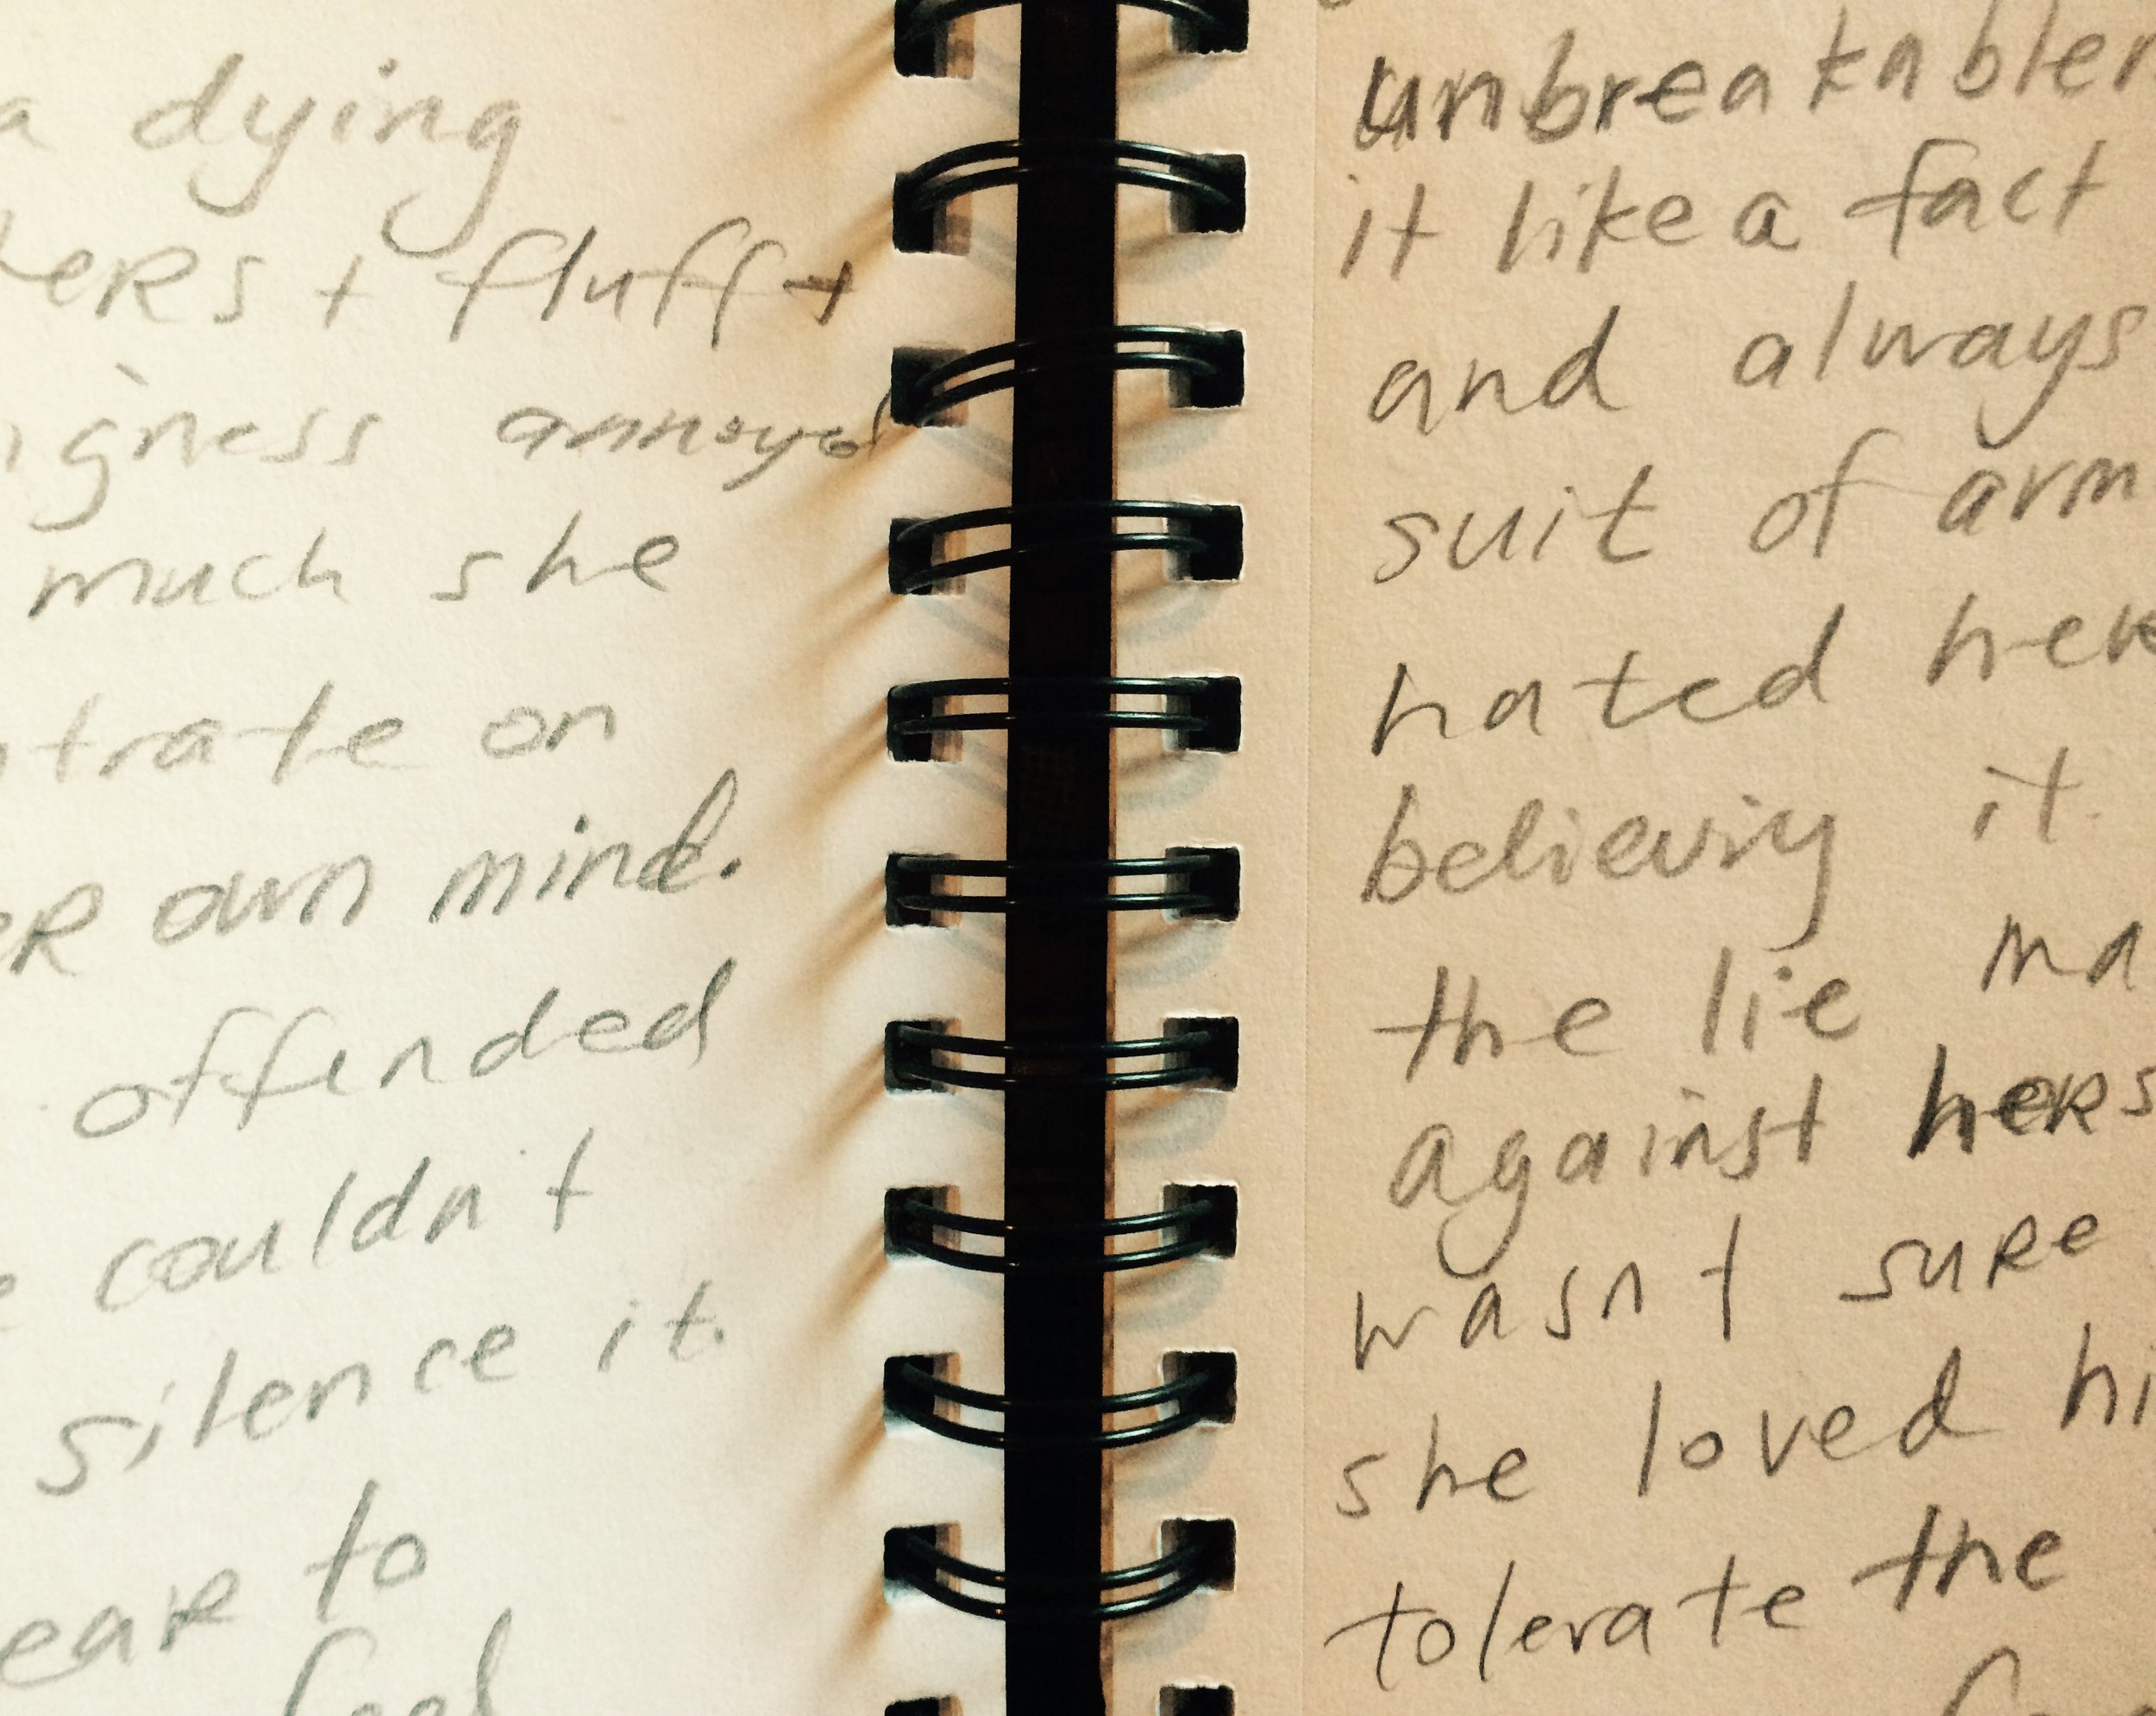 a dying
+ fluff +
annoyed
much she
on
own mind.
offended
couldn't
silence it.
to
feel
unbreakablen
it like a fact
and always
suit of arm
hated her
believing it.
the lie ma
against hers
wasn't sure
she loved hi
tolerate the